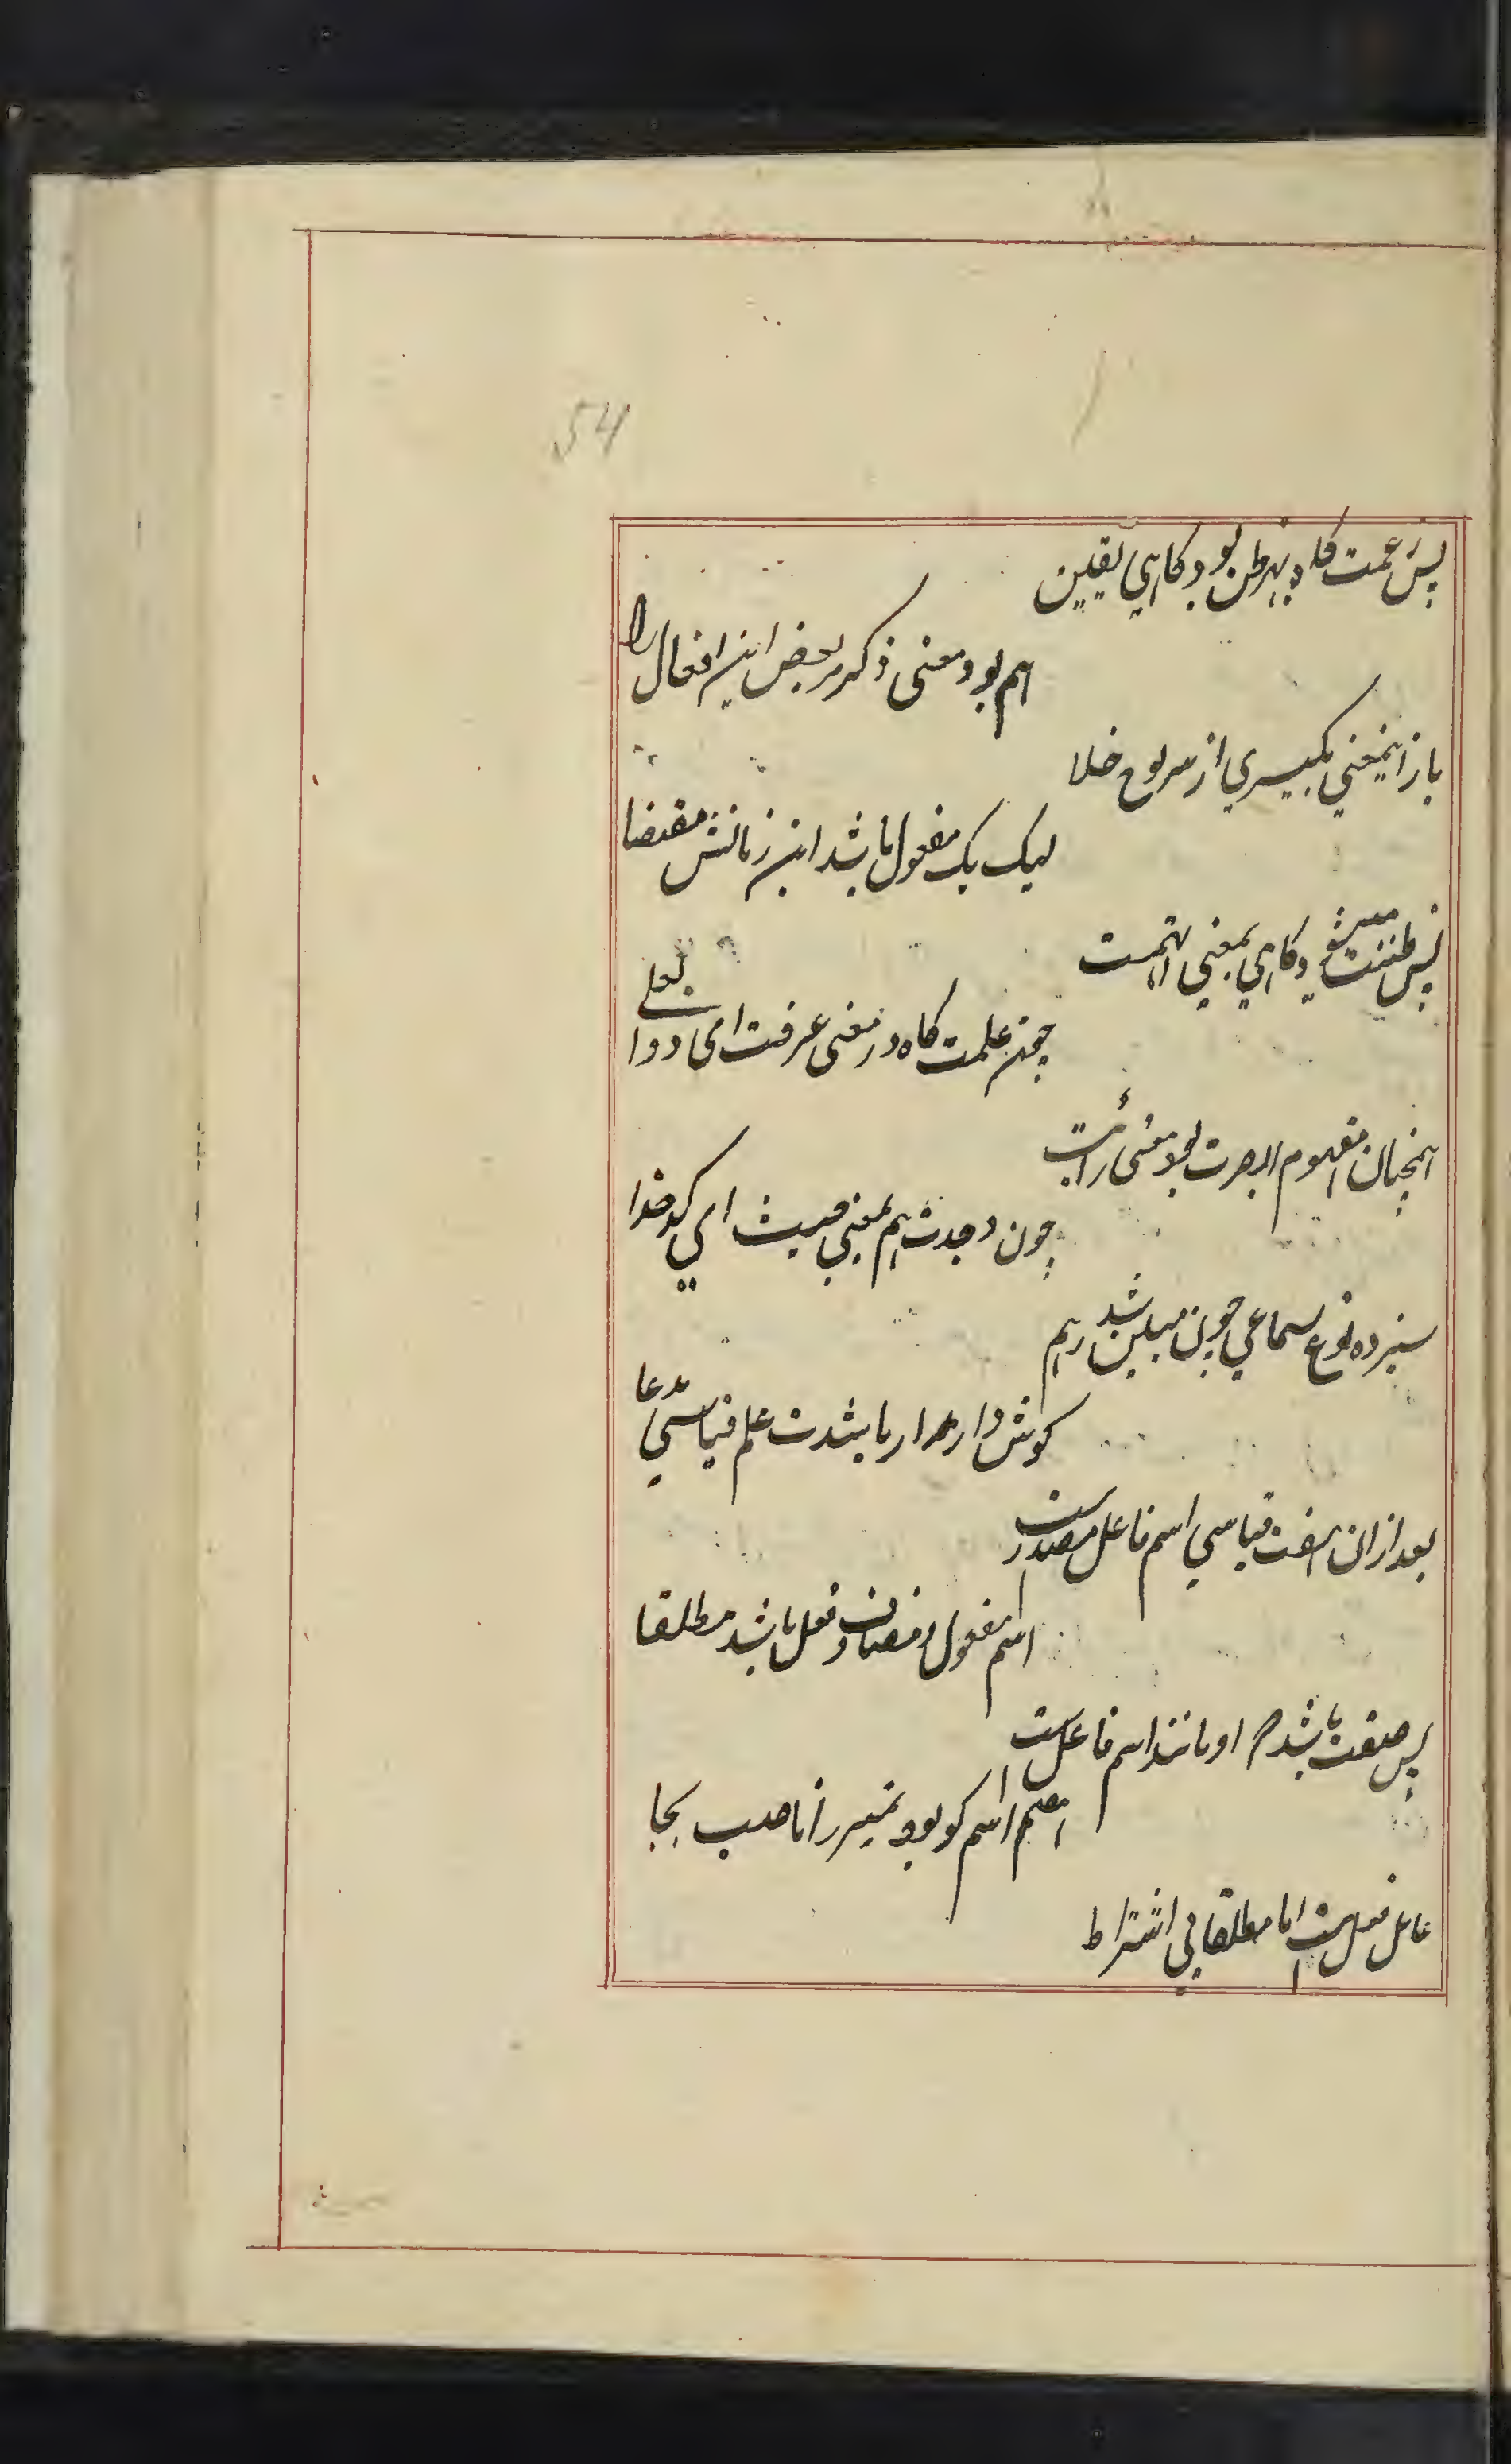 54
پس زعمت گاه بهر ظن بود گاهی یقین
هم بود معنی ذکر مر بعض این افعال را
باز اینمعنی بگیری از سر لوح خلا
لیک یک مفعول باشد این زمانش مقتضا
پس ظننت میشود گاهی بمعنی اتهمت
چون علمت گاه در معنی عرفت ای
همچنان مفهوم ابصرت بود معنی رأیت
چون وجدت هم بمعنی اصبت ای کدخدا
سیزده نوع سماعی چون مبین شد
گوش دار باشدت علم قیاسی مدعا
بعد از ان هفت قیاسی اسم فاعل مصدرست
اسم مفعول و مضاف و فعل باشد مطلقا
پس صفت باشد که او مانند اسم فاعل است
اسم کو بود تمیز را ناصب بجا
عامل فعل است اما مطلقا بی اشتراط